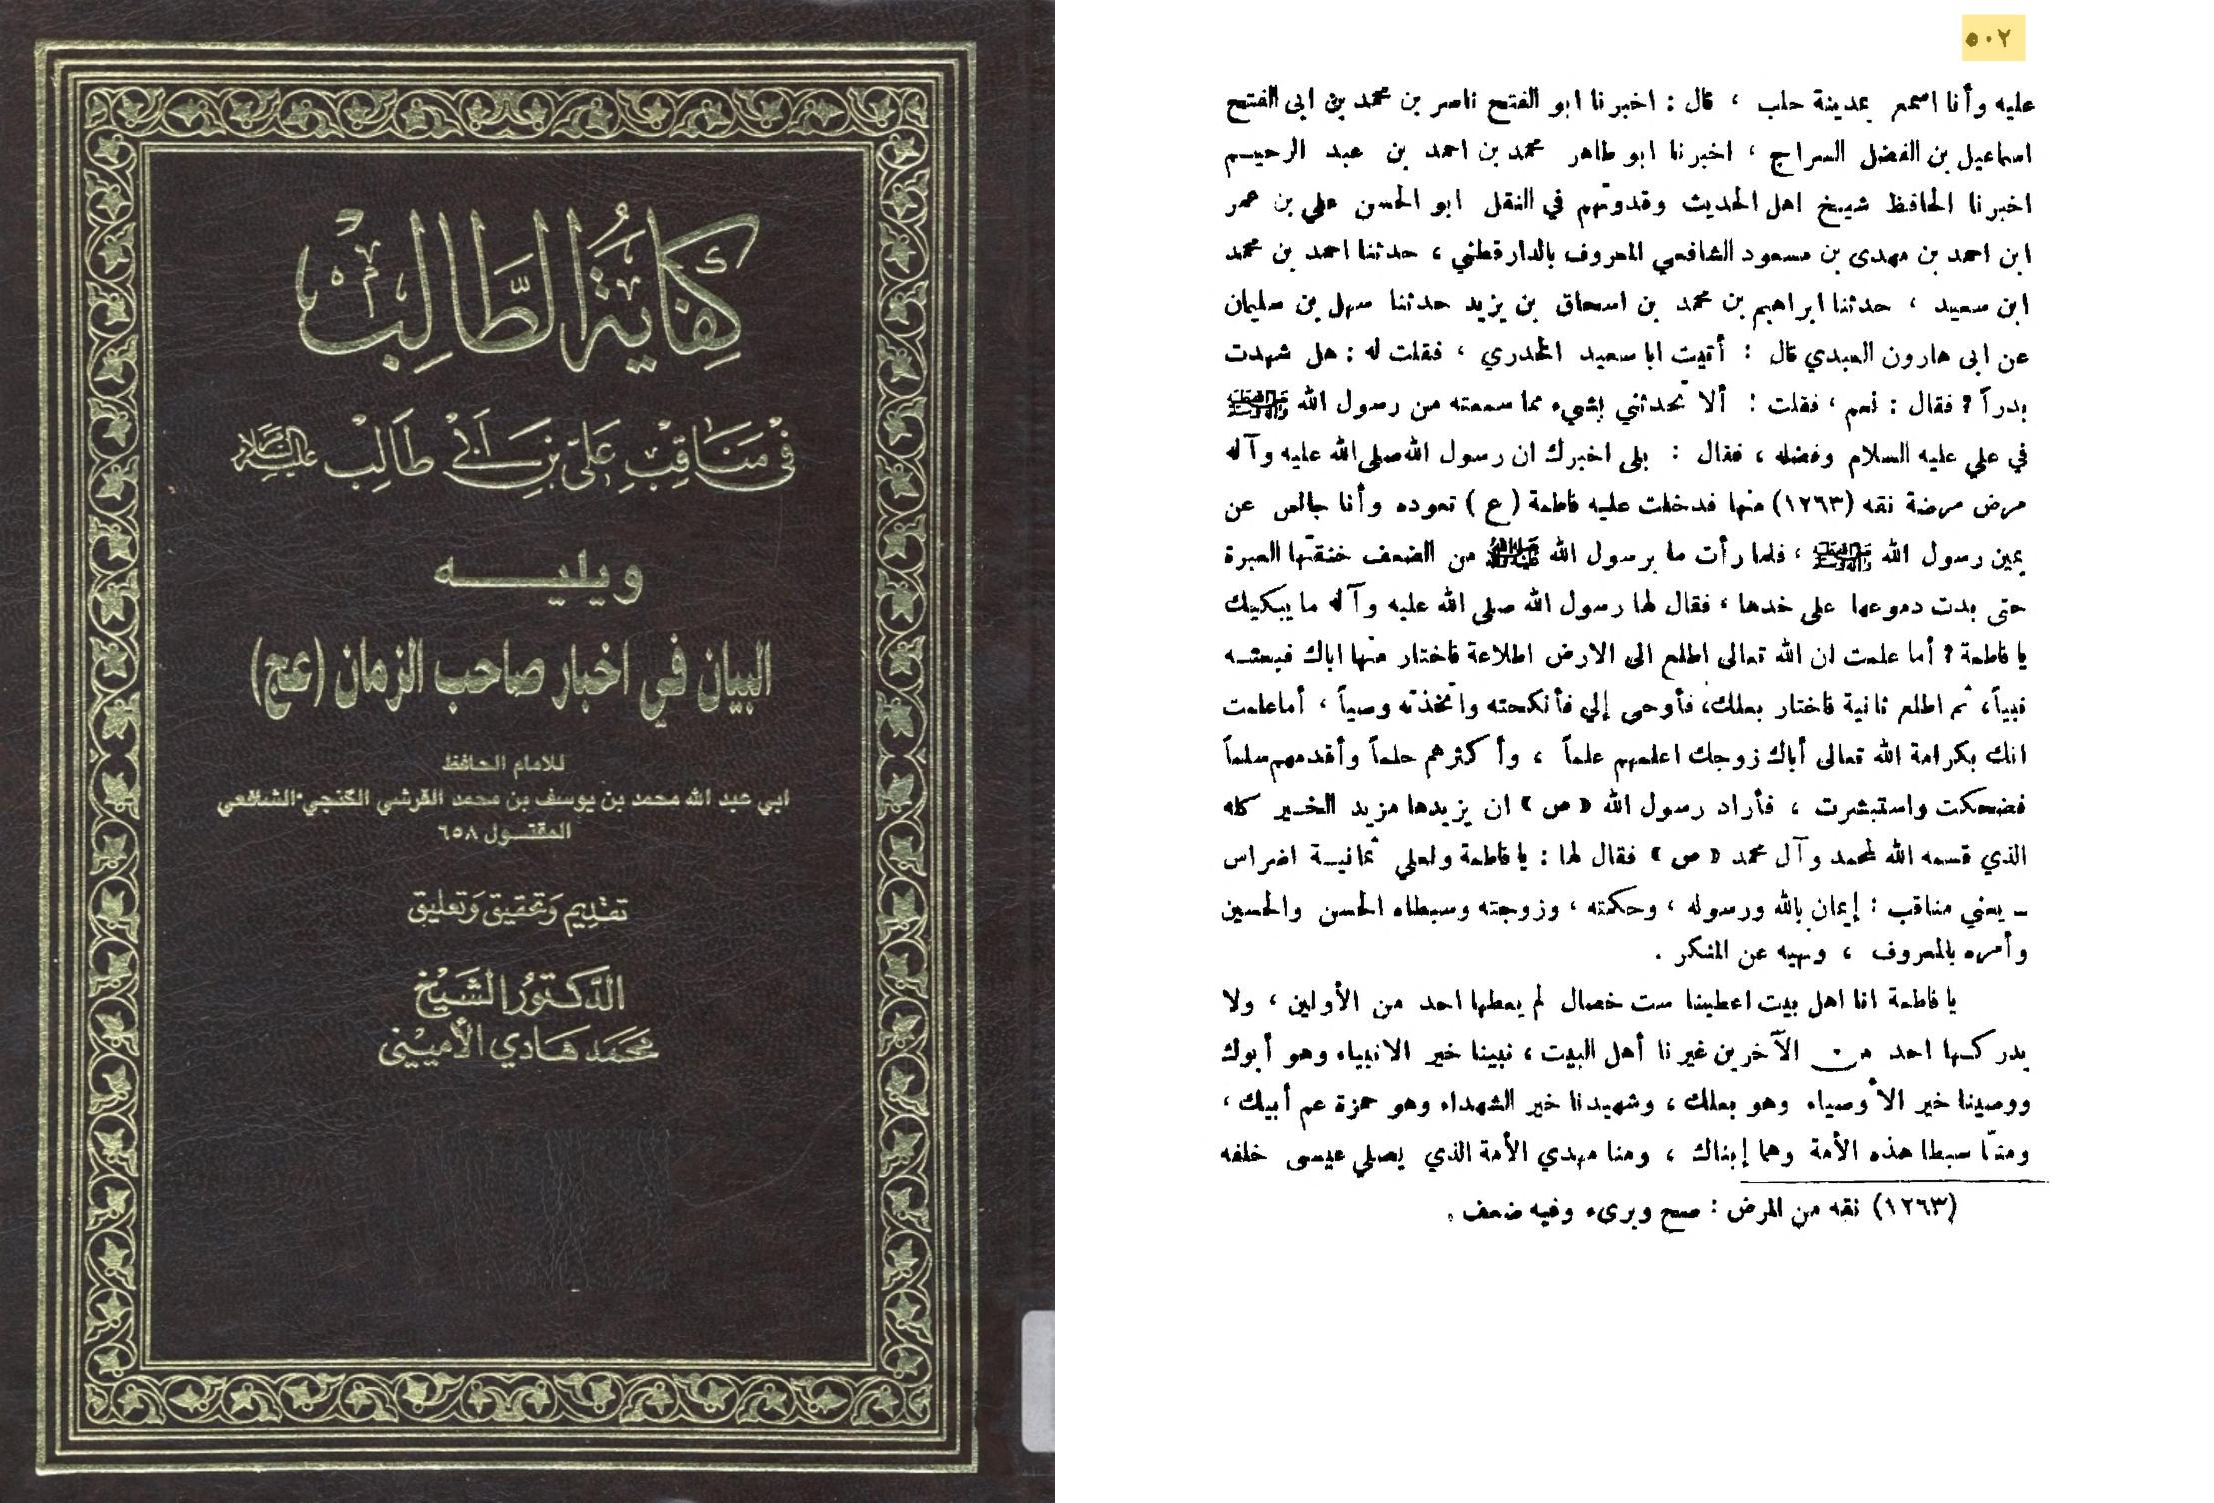 كفاية الطالب
في مناقب علي بن أبي طالب عليه السلام
ويليـــه
البيان في اخبار صاحب الزمان (عج)
للامام الحافظ
ابي عبد الله محمد بن يوسف بن محمد القرشي الگنجي الشافعي
المقتـول ٦٥٨
تقديم وتحقيق وتعليق
الدكتور الشيخ
محمد هادي الأميني
٥٠٢
عليه وأنا اسمع بمدينة حلب ، قال : اخبرنا ابو الفتح ناصر بن محمد بن ابى الفتح
اسماعيل بن الفضل السراج ، اخبرنا ابو طاهر محمد بن احمد بن عبد الرحيـم
اخبرنا الحافظ شيخ اهل الحديث وقدوتهم في النقل ابو الحسن علي بن عمر
ابن احمد بن مهدى بن مسعود الشافعي المعروف بالدارقطني ، حدثنا احمد بن محمد
ابن سعيد ، حدثنا ابراهيم بن محمد بن اسحاق بن يزيد حدثنا سهل بن سليمان
عن ابى هارون العبدي قال : أتيت ابا سعيد الخدري ، فقلت له : هل شهدت
بدراً ؟ فقال : نعم ، فقلت : ألا تحدثني بشيء مما سمعته من رسول الله ﷺ
في علي عليه السلام وفضله ، فقال : بلى اخبرك ان رسول الله صلى الله عليه وآله
مرض مرضة نقه (١٢٦٣) منها فدخلت عليه فاطمة ( ع ) تعوده وأنا جالس عن
يمين رسول الله ﷺ ، فلما رأت ما برسول الله ﷺ من الضعف خنقتها العبرة
حتى بدت دموعها على خدها ، فقال لها رسول الله صلى الله عليه وآله ما يبكيك
يا فاطمة ؟ أما علمت ان الله تعالى اطلع الى الارض اطلاعة فاختار منها اباك فبعثـه
نبياً ، ثم اطلع ثانية فاختار بعلك، فأوحى إلي فأنكحته واتخذته وصياً ، أماعلمت
انك بكرامة الله تعالى أباك زوجك اعلمهم علماً ، وأكثرهم حلماً وأقدمهم سلماً
فضحكت واستبشرت ، فأراد رسول الله « ص » ان يزيدها مزيد الخـير كله
الذي قسمه الله لمحمد وآل محمد « ص » فقال لها : يا فاطمة ولعلي ثمانيـة اضراس
ـ يعني مناقب : إيمان بالله ورسوله ، وحكمته ، وزوجته وسبطاه الحسن والحسين
وأمره بالمعروف ، ونهيه عن المنكر .
يا فاطمة انا اهل بيت اعطينا ست خصال لم يعطها احد من الأولين ، ولا
يدركـها احد من الآخرين غيرنا أهل البيت ، نبينا خير الانبياء وهو أبوك
ووصينا خير الأوصياء وهو بعلك ، وشهيدنا خير الشهداء وهو حمزة عم أبيك ،
ومنّا سبطا هذه الأمة وهما إبناك ، ومنا مهدي الأمة الذي يصلي عيسى خلفه
(١٢٦٣) نقه من المرض : صح وبرىء وفيه ضعف .